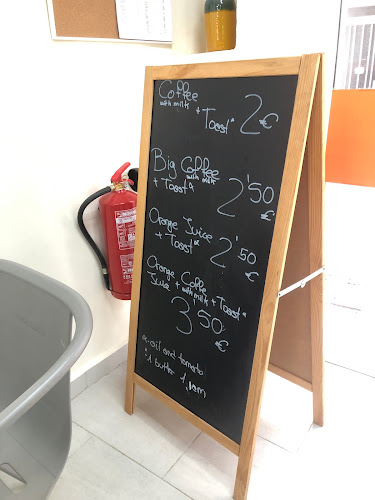 Coffee
with milk + Toast* 2€
Big Coffee
with milk
+ Toast* 2'50
€
Orange Juice
+ Toast* 2'50
€
Orange Coffe
Juice + with milk + Toast*
3'50
€
oil and tomato
1 butter 1 jam